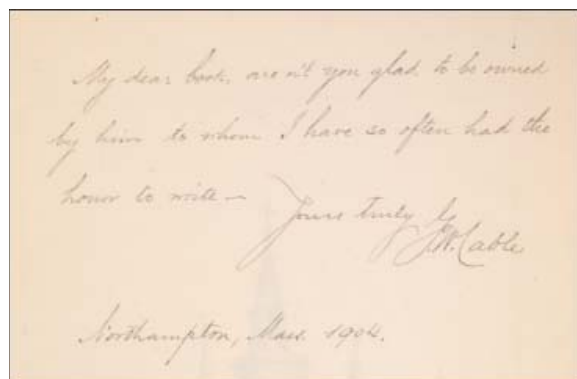 My dear book, are n't you glad to be owned
by him to whom I have so often had the
honor to write—
Yours truly
G.W. Cable
Northampton, Mass. 1904.